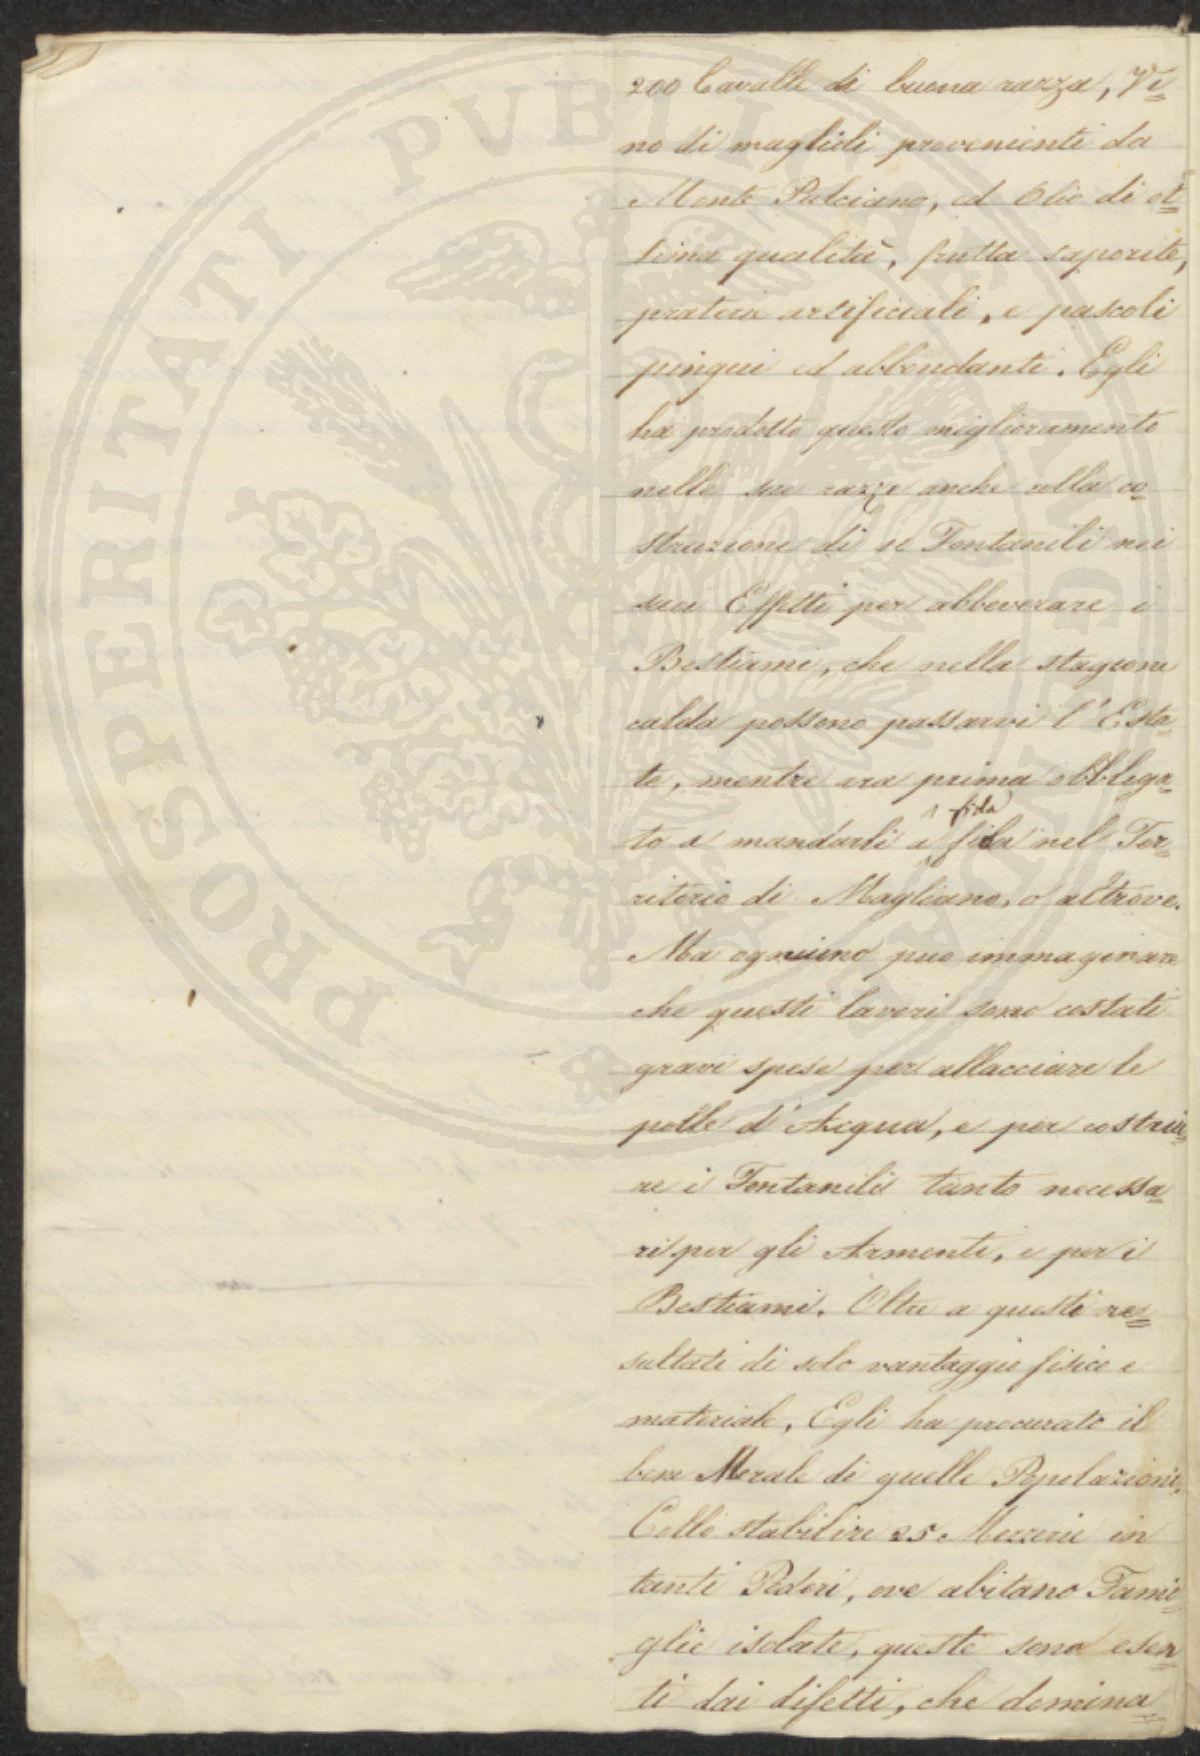 200 Cavalle di buona razza, Vi=
no di maglioli provenienti da
Monte Pulciano, ed Olio di ot=
tima qualità, frutta saporite,
praterie artificiali, e pascoli
pingui ed abbondanti. Egli
ha prodotto questo miglioramento
nelle sue razze anche colla co=
struzione di 11 Fontanili nei
suoi Effetti per abbeverare i
Bestiami, che nella stagione
calda possono passarvi l'Esta=
te, mentre era prima obbliga=
to a mandarli a fida nel Ter=
fida
ritorio di Magliano, o altrove.
Ma ogniuno puo immaginare
che questi lavori sono costati
gravi spese per allacciare le
polle d'Acqua, e per costrui=
re i Fontanili tanto necessa=
ri per gli Armenti, e per i
Bestiami. Oltre a questi re=
sultati di solo vantaggio fisico e
materiale, Egli ha procurato il
bene Morale di quelle Popolazioni.
Collo stabilire 25 Mezzerie in
tanti Poderi, ove abitano Fami=
glie isolate, queste sono esen=
ti dai difetti, che domina=
PROSPERITATI PUBLICAE AUGENDAE